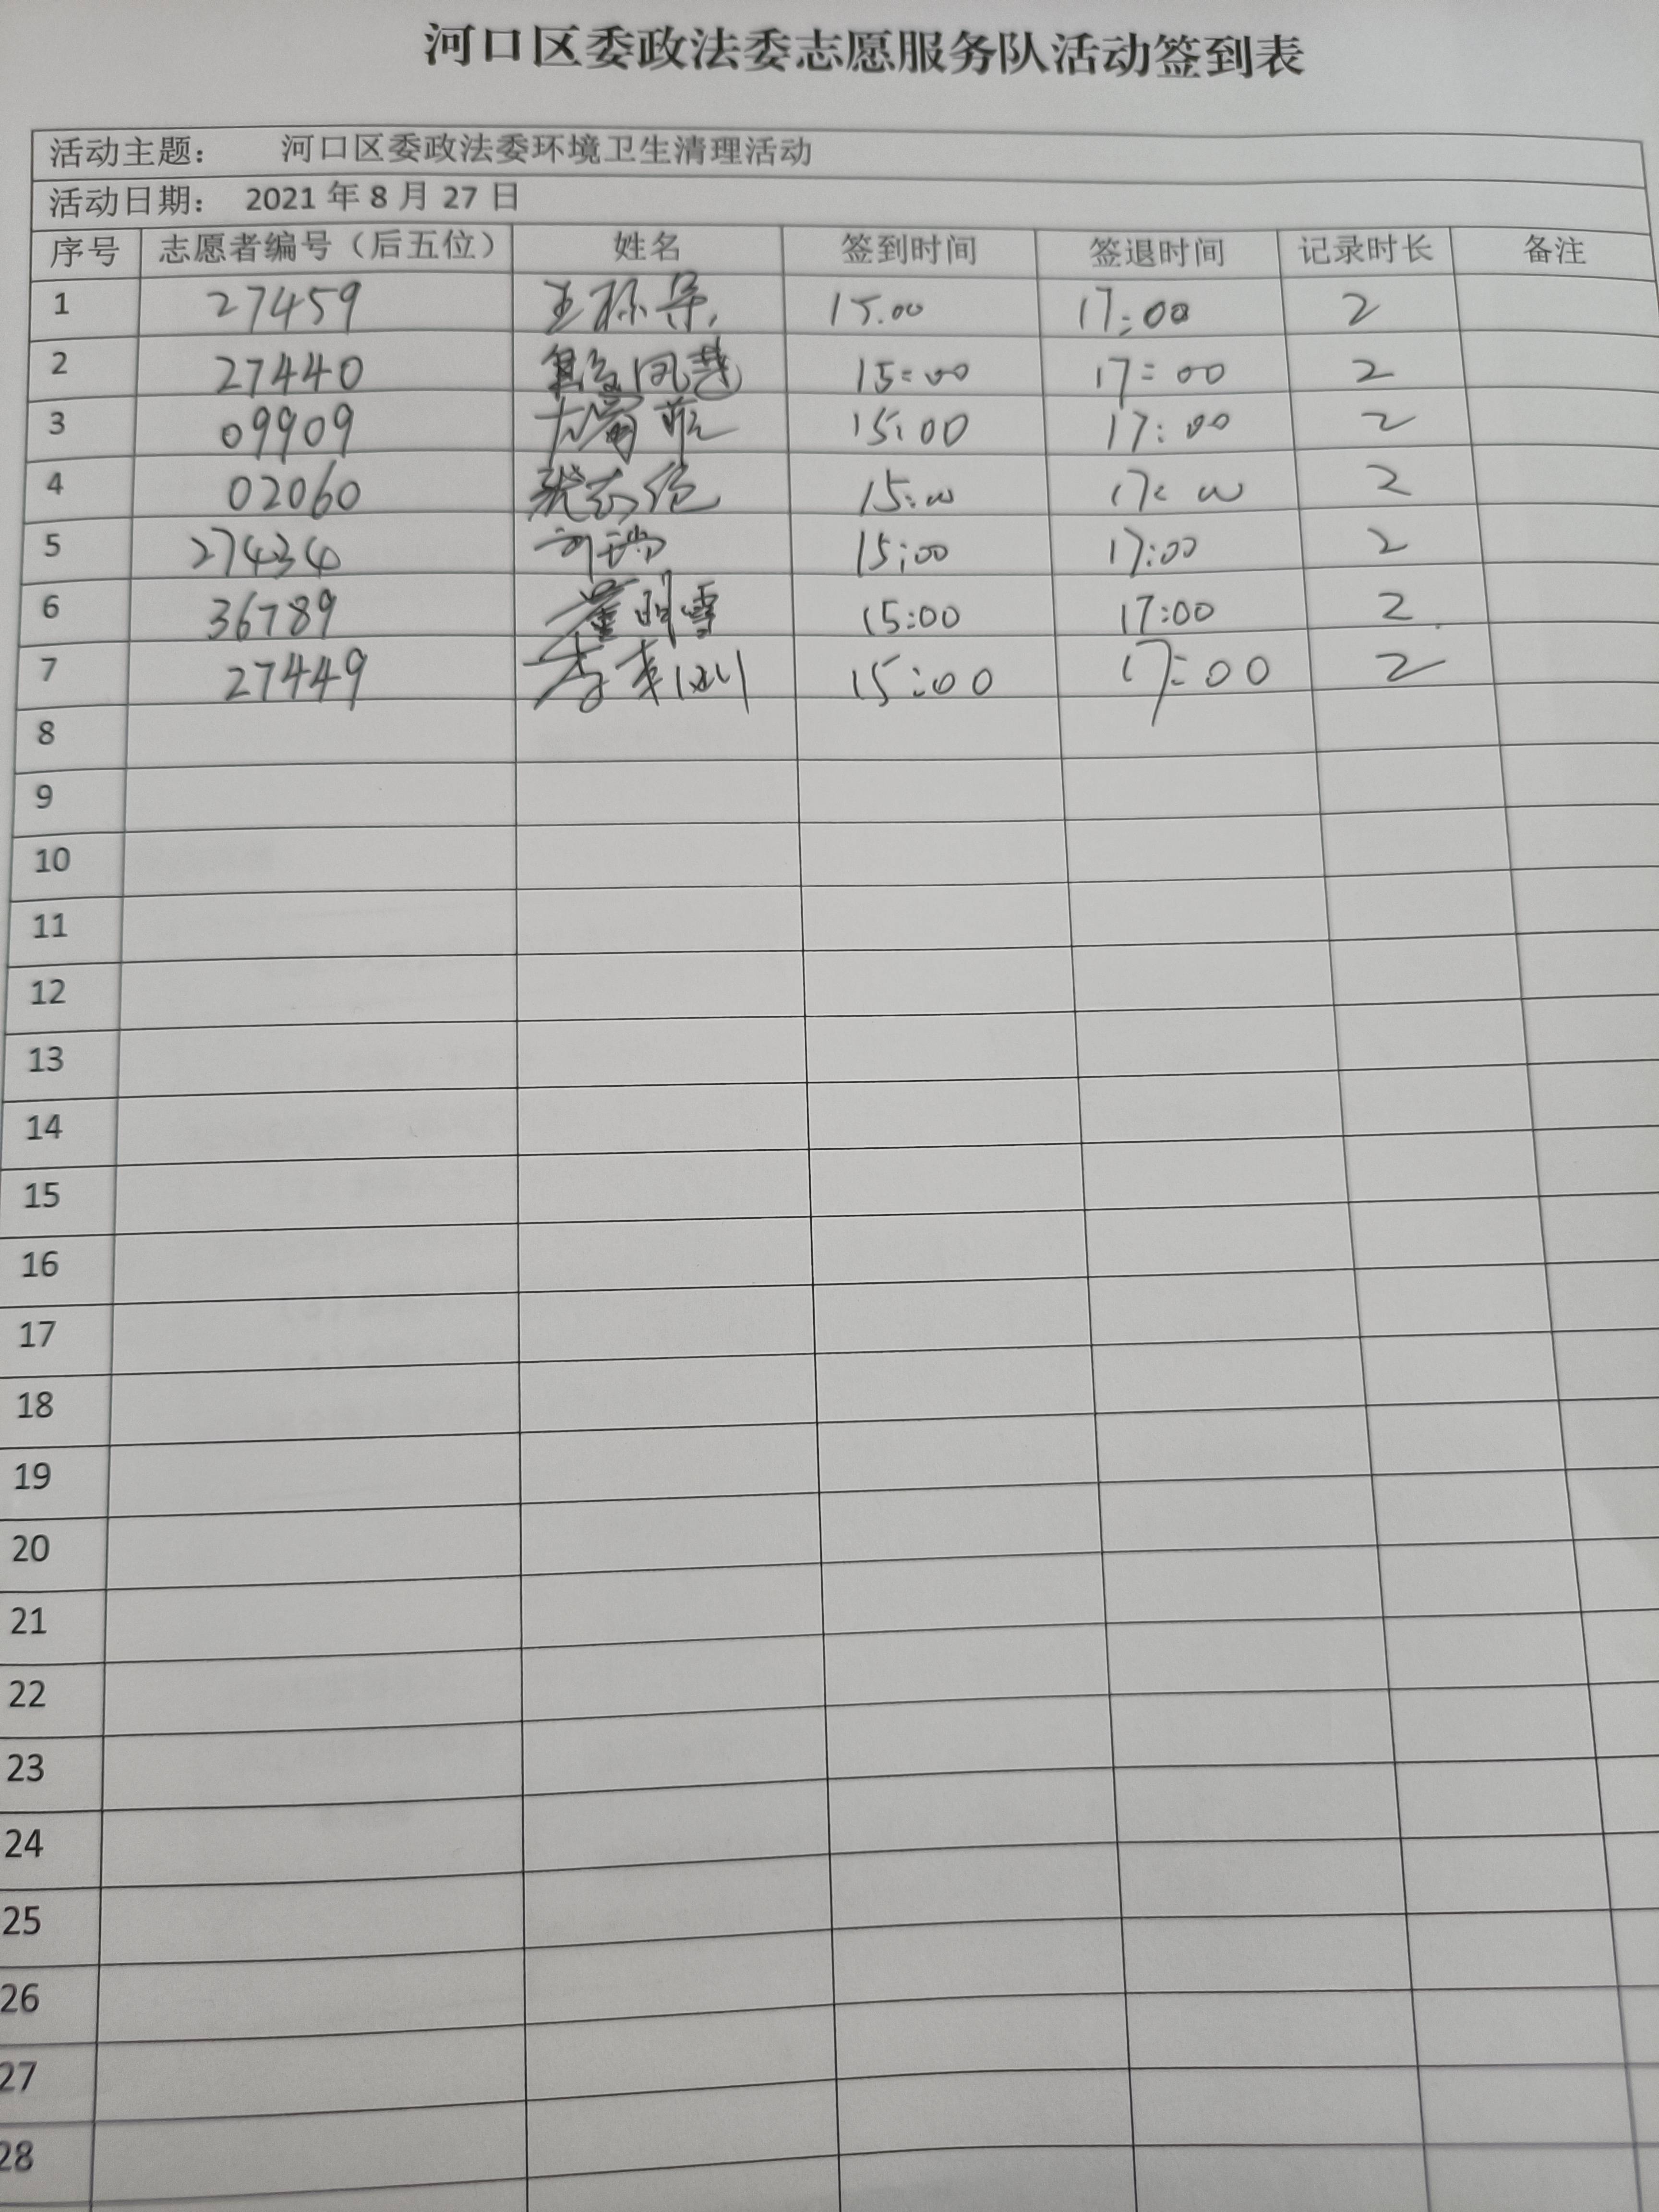 河口区委政法委志愿服务队活动签到表
活动主题： 河口区委政法委环境卫生清理活动
活动日期： 2021 年 8 月 27 日
序号 志愿者编号（后五位） 姓名 签到时间 签退时间 记录时长 备注
1 27459 15.00 17:00 2
2 27440 15:00 17:00 2
3 09909 15:00 17:00 2
4 02060 15:00 17:00 2
5 27434 15:00 17:00 2
6 36789 董明雪 15:00 17:00 2
7 27449 15:00 17:00 2
8
9
10
11
12
13
14
15
16
17
18
19
20
21
22
23
24
25
26
27
28